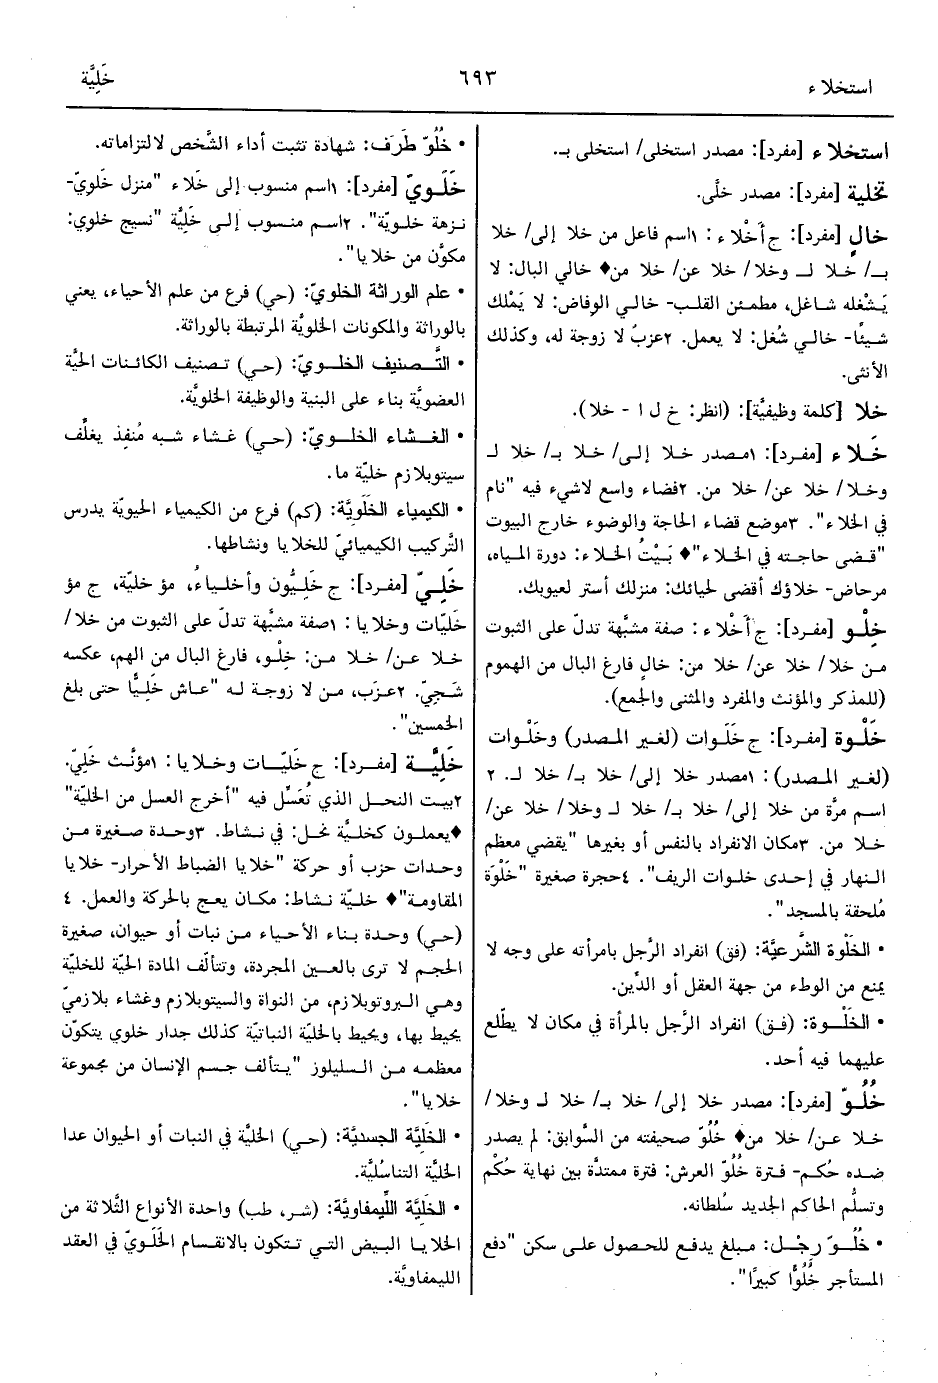 استخلاء
٦٩٣
خَلِيَّة
استخلاء [مفرد]: مصدر استخلى/ استخلى بـ.
تخلية [مفرد]: مصدر خلَّى.
خالٍ [مفرد]: ج أخْلاء: ١اسم فاعل من خلا إلى/ خلا
بـ/ خلا لـ وخلا/ خلا عن/ خلا من♦ خالي البال: لا
يَشْغله شاغل، مطمئن القلب- خالي الوفاض: لا يَمْلك
شيئًا- خالي شُغل: لا يعمل. ٢عزبٌ لا زوجة له، وكذلك
الأنثى.
خلا [كلمة وظيفيَّة]: (انظر: خ ل ا - خلا).
خَلاء [مفرد]: ١مصدر خلا إلى/ خلا بـ/ خلا لـ
وخلا/ خلا عن/ خلا من. ٢فضاء واسع لاشيء فيه "نام
في الخلاء". ٣موضع قضاء الحاجة والوضوء خارج البيوت
"قضى حاجته في الخلاء"♦ بَيْتُ الخلاء: دورة المياه،
مرحاض- خلاؤك أقضى لحيائك: منزلك أستر لعيوبك.
خِلْو [مفرد]: ج أخْلاء: صفة مشبَّهة تدلّ على الثبوت
من خلا/ خلا عن/ خلا من: خالٍ فارغ البال من الهموم
(للمذكر والمؤنث والمفرد والمثنى والجمع).
خَلْوة [مفرد]: ج خَلَوات (لغير المصدر) وخَلْوات
(لغير المصدر): ١مصدر خلا إلى/ خلا بـ/ خلا لـ. ٢
اسم مرَّة من خلا إلى/ خلا بـ/ خلا لـ وخلا/ خلا عن/
خلا من. ٣مكان الانفراد بالنفس أو بغيرها "يقضي معظم
النهار في إحدى خلوات الريف". ٤حجرة صغيرة "خَلْوَة
مُلحقة بالمسجد".
• الخَلْوة الشَّرعيَّة: (فق) انفراد الرَّجل بامرأته على وجه لا
يمنع من الوطء من جهة العقل أو الدِّين.
• الخَلْوة: (فق) انفراد الرَّجل بالمرأة في مكان لا يطّلع
عليهما فيه أحد.
خُلُوّ [مفرد]: مصدر خلا إلى/ خلا بـ/ خلا لـ وخلا/
خلا عن/ خلا من♦ خُلُوّ صحيفته من السَّوابق: لم يصدر
ضده حُكم- فترة خُلُوّ العرش: فترة ممتدَّة بين نهاية حُكْم
وتسلُّم الحاكم الجديد سُلطانه.
• خُلُوّ رِجْل: مبلغ يدفع للحصول على سكن "دفع
المستأجر خُلُوًّا كبيرًا".
• خُلُوّ طَرَف: شهادة تثبت أداء الشَّخص لالتزاماته.
خَلَويّ [مفرد]: ١اسم منسوب إلى خَلاء "منزل خَلَويّ-
نزهة خلويّة". ٢اسم منسوب إلى خَلِيَّة "نسيج خلوي:
مكوَّن من خلايا".
• علم الوراثة الخلويّ: (حي) فرع من علم الأحياء، يعني
بالوراثة والمكونات الخلويَّة المرتبطة بالوراثة.
• التَّصنيف الخلويّ: (حي) تصنيف الكائنات الحيَّة
العضويَّة بناء على البنية والوظيفة الخلويَّة.
• الغشاء الخلويّ: (حي) غشاء شبه مُنفِذ يغلِّف
سيتوبلازم خليّة ما.
• الكيمياء الخَلَويَّة: (كم) فرع من الكيمياء الحيويّة يدرس
التَّركيب الكيميائيّ للخلايا ونشاطها.
خَلِيّ [مفرد]: ج خَلِيُّون وأخلياءُ، مؤ خليّة، ج مؤ
خَلِيَّات وخلايا: ١صفة مشبَّهة تدلّ على الثبوت من خلا/
خلا عن/ خلا من: خِلْو، فارغ البال من الهم، عكسه
شَجِيّ. ٢عزَب، من لا زوجة له "عاش خَلِيًّا حتى بلغ
الخمسين".
خَلِيَّة [مفرد]: ج خَلِيَّات وخلايا: ١مؤنَّث خَلِيّ.
٢بيت النحل الذي تُعَسِّل فيه "أخرج العسل من الخليَّة"
♦يعملون كخليَّة نحل: في نشاط. ٣وحدة صغيرة من
وحدات حزب أو حركة "خلايا الضباط الأحرار- خلايا
المقاومة"♦ خليَّة نشاط: مكان يعج بالحركة والعمل. ٤
(حي) وحدة بناء الأحياء من نبات أو حيوان، صغيرة
الحجم لا ترى بالعين المجردة، وتتألّف المادة الحيَّة للخليَّة
وهي البروتوبلازم، من النواة والسيتوبلازم وغشاء بلازميّ
يحيط بها، ويحيط بالخليَّة النباتيَّة كذلك جدار خلوي يتكوّن
معظمه من السليلوز "يتألف جسم الإنسان من مجموعة
خلايا".
• الخَليَّة الجسديَّة: (حي) الخليَّة في النبات أو الحيوان عدا
الخليَّة التناسُليَّة.
• الخَليَّة اللِّيمفاويَّة: (شر، طب) واحدة الأنواع الثَّلاثة من
الخلايا البيض التي تتكون بالانقسام الخَلَويّ في العقد
الليمفاويَّة.